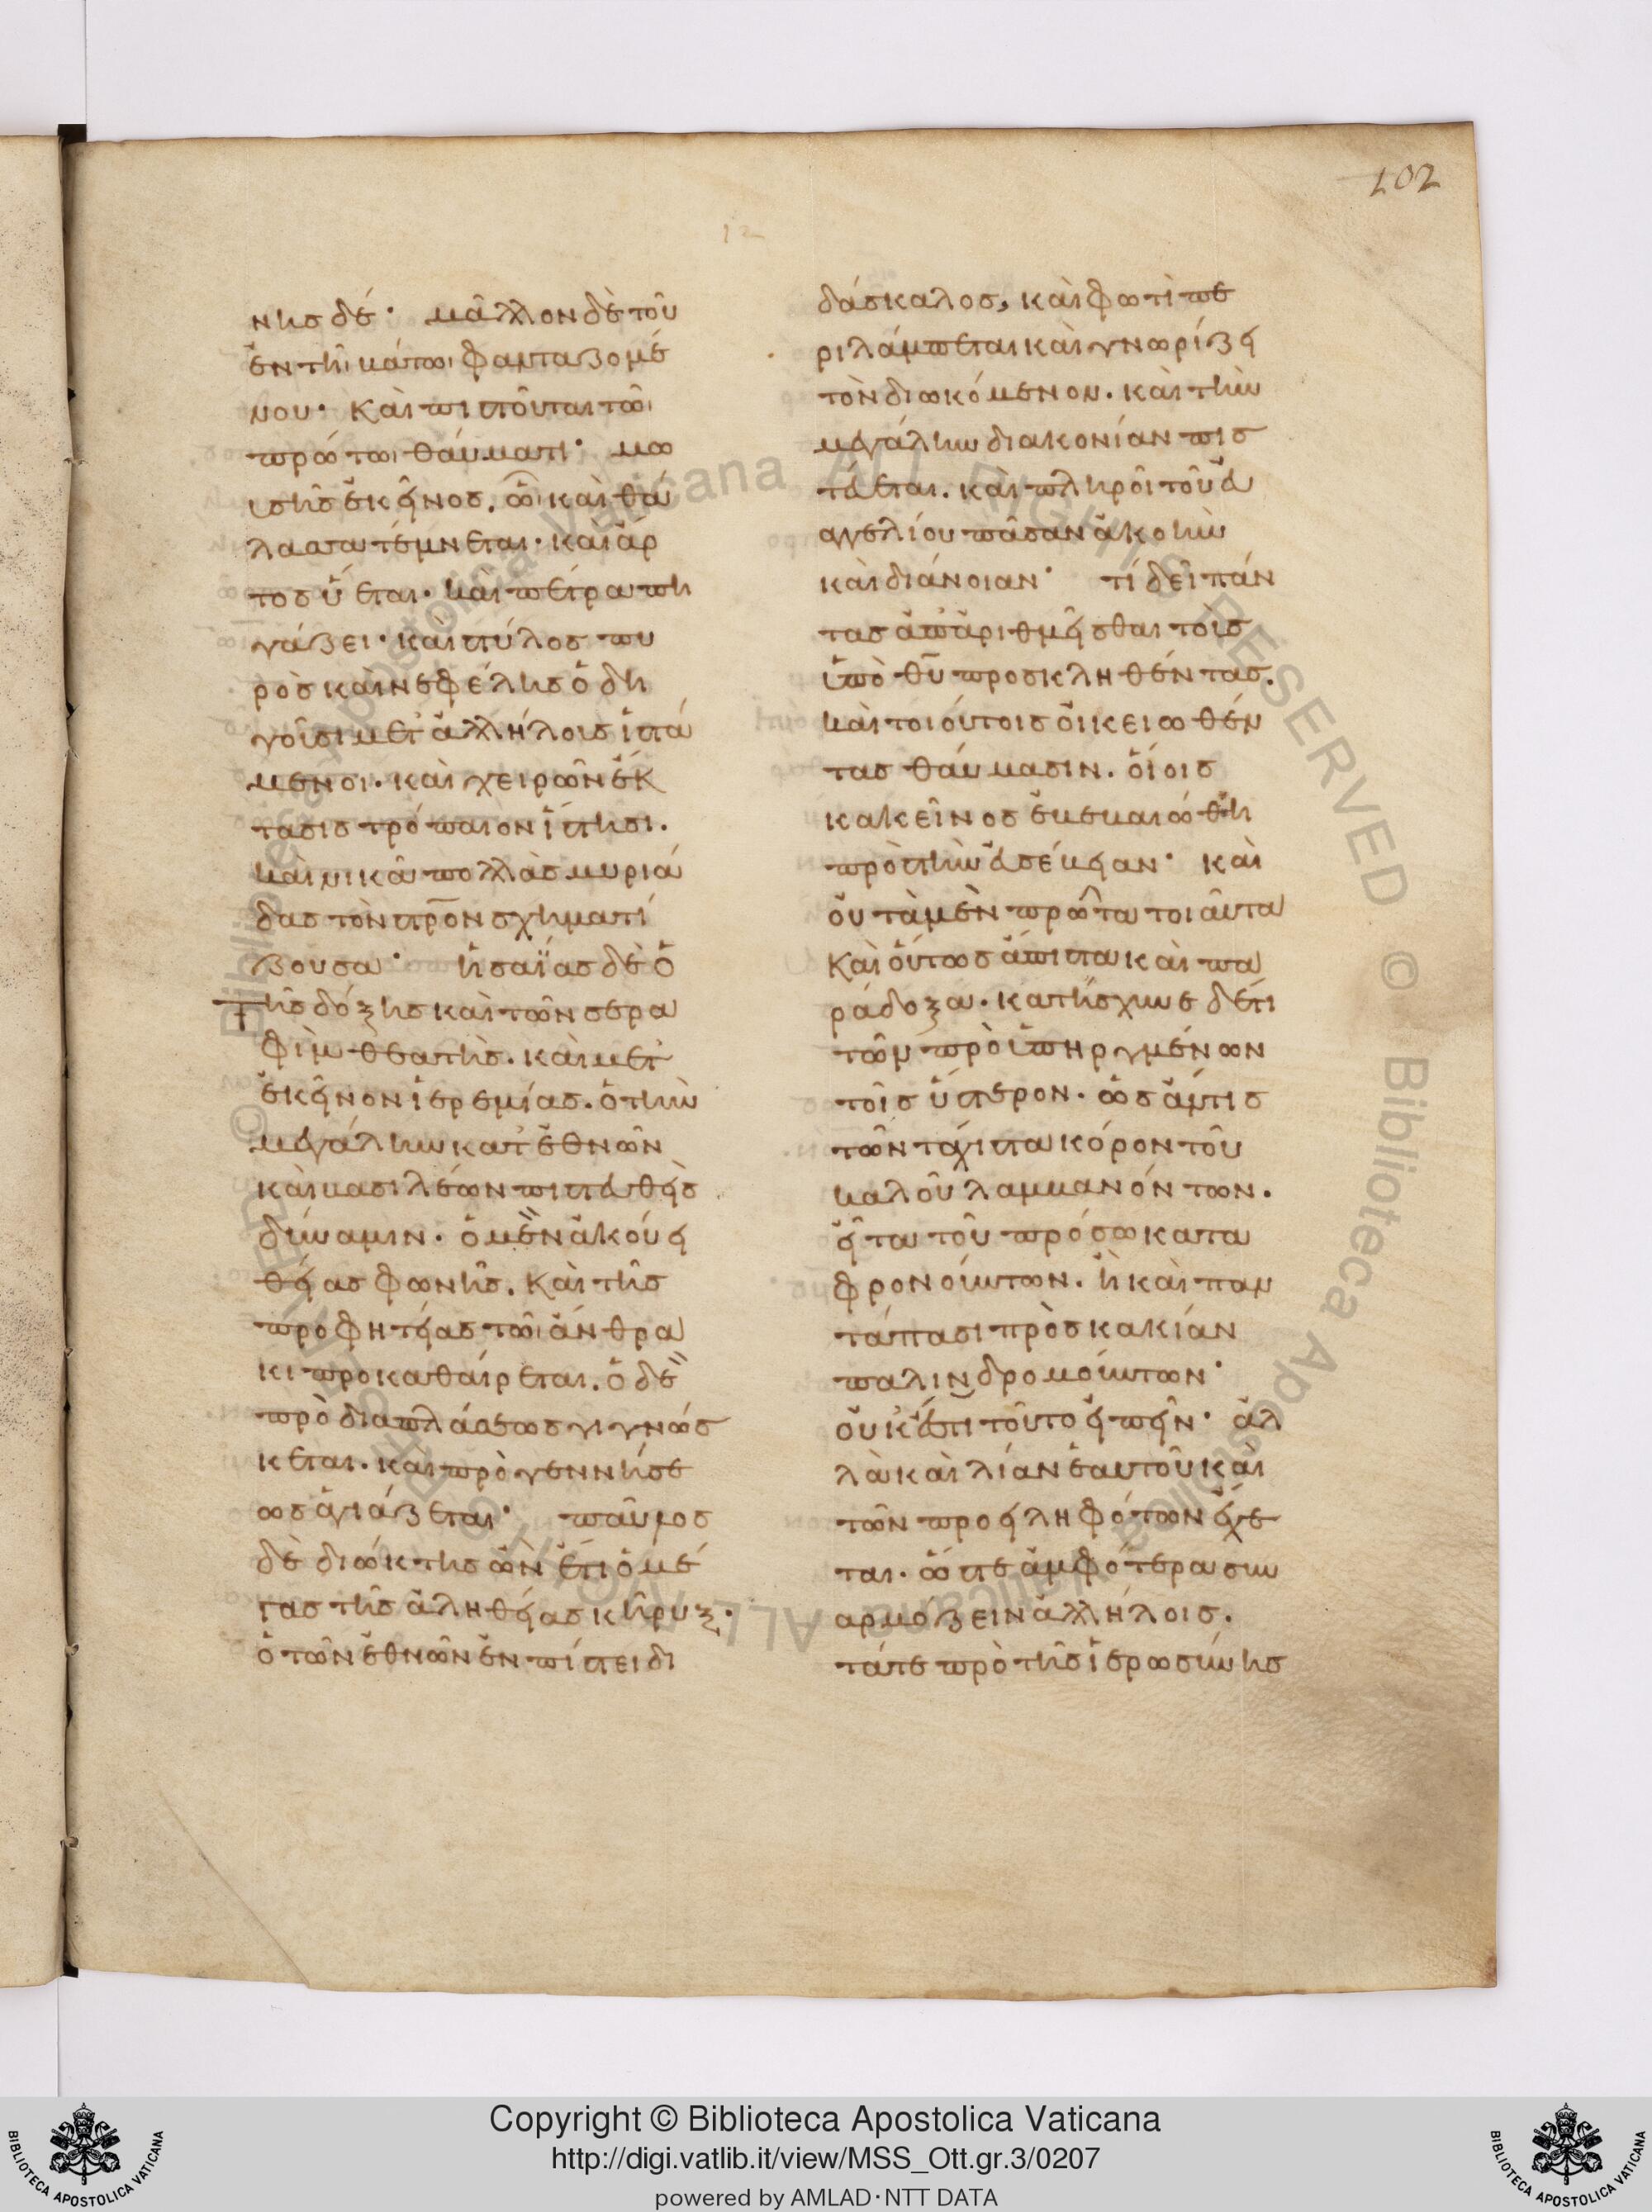 102
12
νησ δέ· μᾶλλον δὲ τοῦ
ἐν τῆι βάτωι φανταζομέ
νου· καὶ πιστοῦται τῶι
πρώτωι θαύματι· μω
υσῆς ἐκεῖνος. ὧι καὶ θά
λασσα τέμνεται· καὶ ἄρ
τος ὕεται· καὶ πέτρα πη
γάζει· καὶ στύλος πυ
ρὸς καὶ νεφέλης ὁδη
γοῦσι μετ' ἀλλήλοις ἱστά
μενοι. καὶ χειρῶν ἔκ
τασις τρόπαιον ἵστησι.
καὶ νικᾶ πολλὰς μυριά
δας τὸν στρ̅ον σχηματί
ζουσα· ἡσαΐας δὲ ὁ
τῆς δόξης καὶ τῶν σερα
φὶμ θεατὴς. καὶ μετ'
ἐκεῖνον ἱερεμίας. ὁ τὴν
μεγάλην κατ' ἐθνῶν
καὶ βασιλέων πιστευθεὶς
δύναμιν. ὁ μὲν ἀκούει
θείας φωνῆς. καὶ τῆς
προφητείας τῶι ἄνθρα
κι προκαθαίρεται. ὁ δὲ
πρὸ διαπλάσεως γιγνώσ
κεται. καὶ πρὸ γεννήσε
ως ἁγιάζεται· παῦλος
δὲ διώκτης ὢν ἔτι ὁ μέ
γας τῆς ἀληθείας κῆρυξ.
ὁ τῶν ἐθνῶν ἐν πίστει δι
δάσκαλος, καὶ φωτὶ πε
ριλάμπεται καὶ γνωρίζει
τὸν διωκόμενον. καὶ τὴν
μεγάλην διακονίαν πισ
τεύεται. καὶ πληροῖ τοῦ εὐ
αγγελίου πᾶσαν ἀκοὴν
καὶ διάνοιαν· τί δεῖ πάν
τας ἀπαριθμεῖσθαι τοὺς
ὑπὸ θ̅υ̅ προσκληθέντας.
καὶ τοιούτοις οἰκειωθέν
τας θαύμασιν. οἵοις
κακεῖνος ἐβεβαιώθη
πρὸς τὴν εὐσέβειαν· καὶ
οὐ τὰ μὲν πρῶτα τοιαῦτα
καὶ οὕτως ἄπιστα καὶ πα
ράδοξα. κατήσχυνε δέ τι
τῶν προϋπηργμένων
τοῖς ὕστερον. ὡς ἄν τις
τῶν τάχιστα κόρον τοῦ
καλοῦ λαμβανόντων.
εἶτα τοῦ πρόσω κατα
φρονούντων. ἢ καὶ παν
τάπασι πρὸς κακίαν
παλινδρομούντων·
οὐκ ἔστι τοῦτο εἰπεῖν· ἀλ
λὰ καὶ λίαν ἑαυτοῦ καὶ
τῶν προειληφότων ἔχε
ται. ὥστε ἀμφότερα συν
αρμόζειν ἀλλήλοις.
τά τε πρὸ τῆς ἱερωσύνης
Copyright © Biblioteca Apostolica Vaticana
http://digi.vatlib.it/view/MSS_Ott.gr.3/0207
powered by AMLAD·NTT DATA